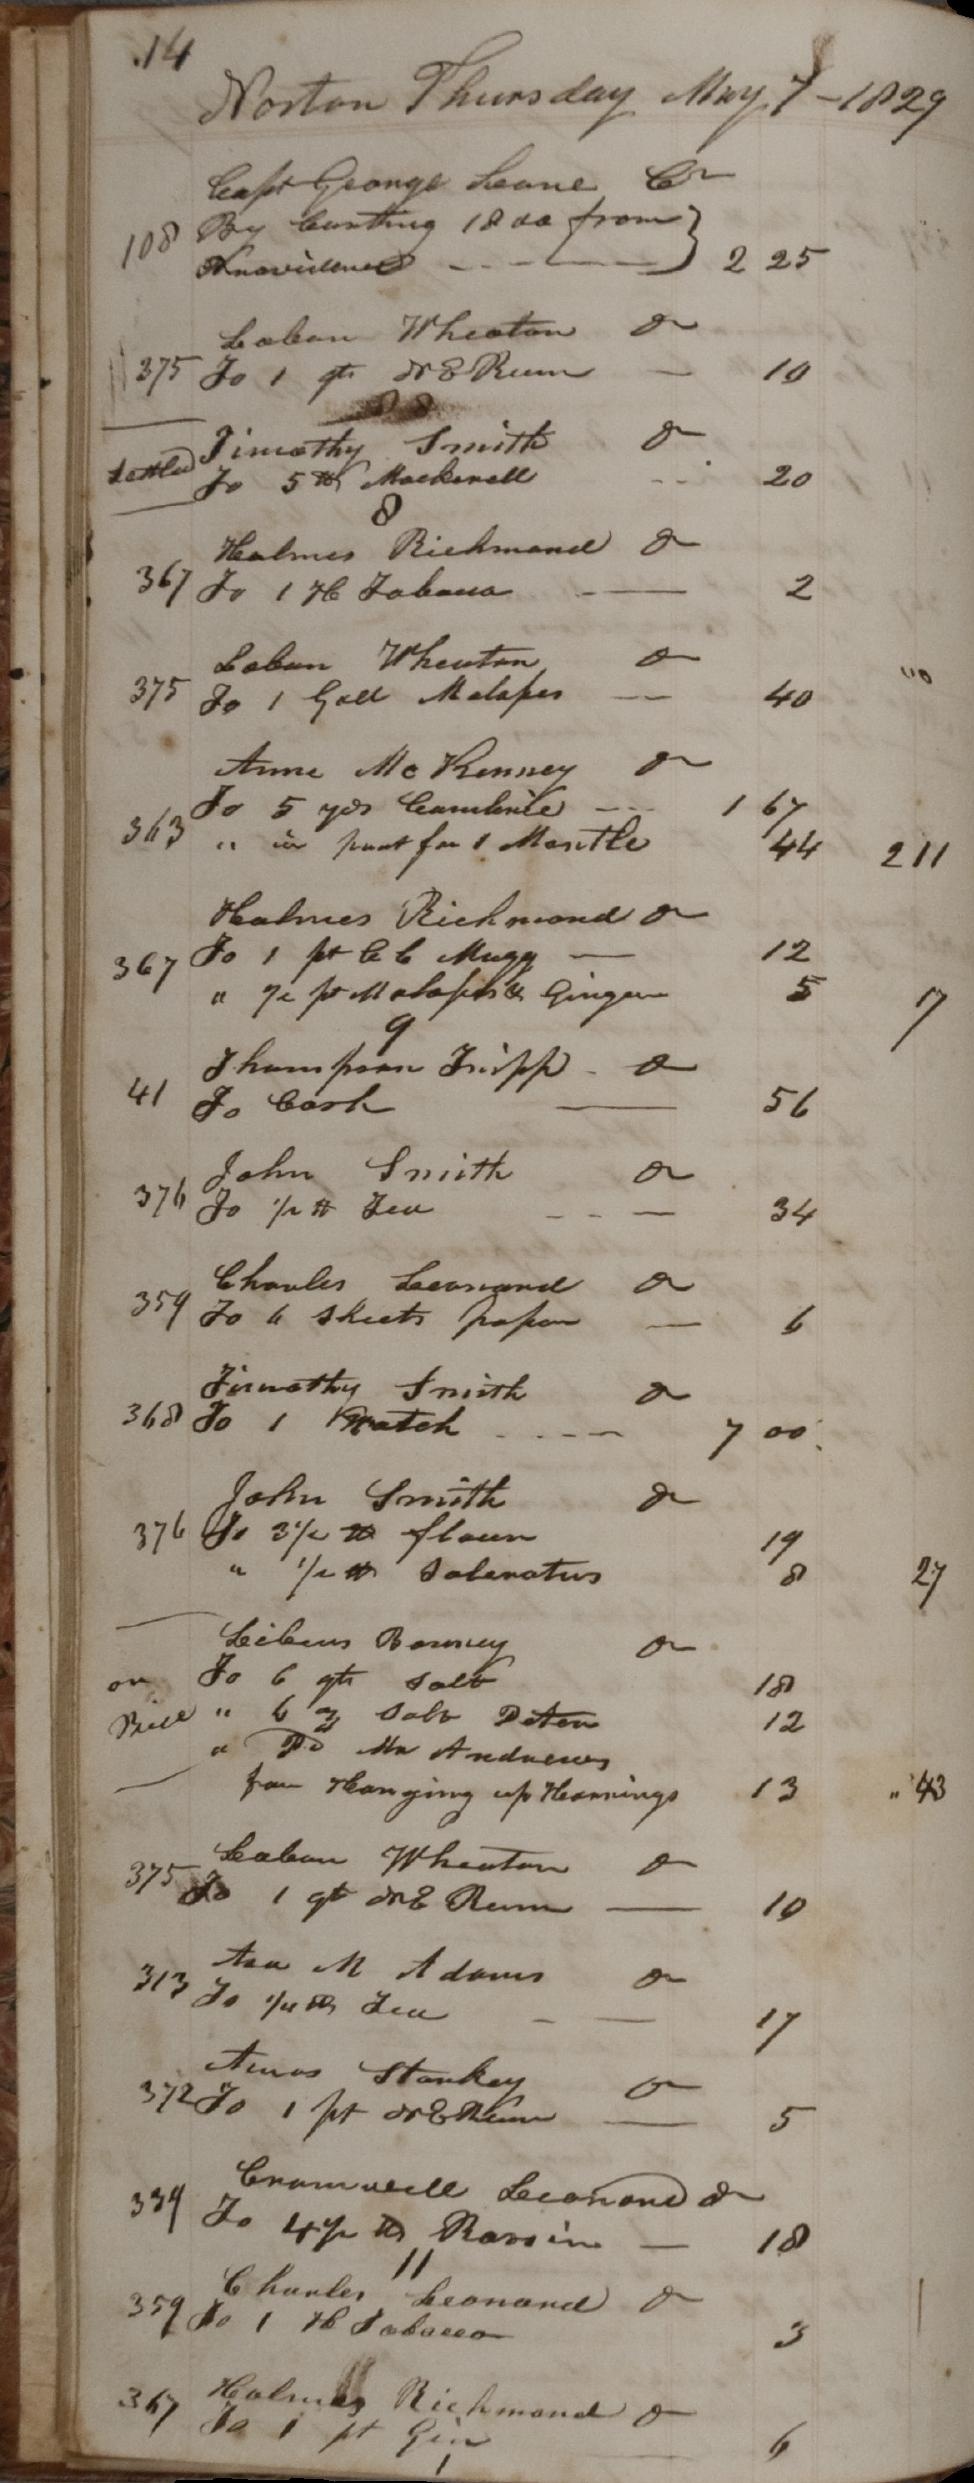 14
Norton Thursday May 7 - 1829
Capt George Lane Cr
108 By Carting 1800 from
Providence 2 25
Laban Wheaton Dr
375 To 1 qt N E Rum 10
8
Timothy Smith Dr
Settled To 5 lb Mackerell 20
8
Holmes Richmond Dr
367 To 1 H Tobacco 2
Laban Wheaton Dr
375 To 1 Gall Molasses 40
Anne McKenney Dr
To 5 yds Cambric 1 67
363 " in part for 1 Mantle 44 2 11
Holmes Richmond Dr
367 To 1 pt C C Mugg 12
" 1/2 pt Molasses & Ginger 5 17
9
Thompson Tripp Dr
41 To Cash 56
John Smith Dr
376 To 1/2 lb Tea 34
Charles Leonard Dr
359 To 6 Sheets paper 6
Timothy Smith Dr
368 To 1 Watch 7 00
John Smith Dr
376 To 3 1/2 lb flour 19
" 1/2 lb Saleratus 8 27
Lebeus Bonney Dr
on To 6 qts Salt 18
Bill " 6 oz Salt Peter 12
" Pd Mr Andrews
for Hanging up Herrings 13 " 43
Laban Wheaton Dr
375 To 1 qt N E Rum 10
Asa M Adams Dr
313 To 1/4 lb Tea 17
Amos Starkey Dr
372 To 1 pt N E Rum 5
Cromwell Leonard Dr
339 To 4 1/2 lb Rosin 18
11
Charles Leonard Dr
359 To 1 H Tobacco 3
Holmes Richmond Dr
367 To 1 pt Gin 6